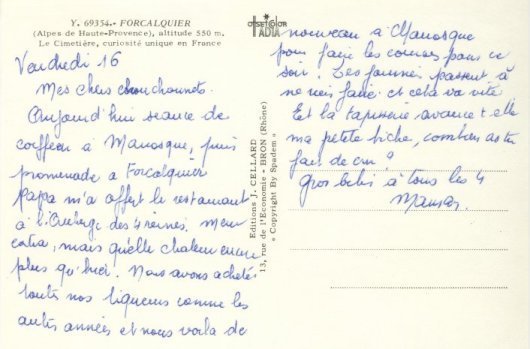 Y. 69354.- FORCALQUIER
(Alpes de Haute-Provence), altitude 550 m.
Le Cimetière, curiosité unique en France
Vendredi 16
Mes chers chouchounets.
Aujourd'hui séance de
coiffeur à Manosque, puis
promenade à Forcalquier
Papa m'a offert le restaurant
à l'Auberge des 4 reines. Menu
extra, mais quelle chaleur encore
plus qu'hier. Nous avons acheté
toutes nos liqueurs comme les
autres années et nous voilà de
Editions J. CELLARD
13, rue de l'Economie - BRON (Rhône)
« Copyright By Spadem »
OFFSET COLOR
IADIA
nouveau à Manosque
pour faire les courses pour ce
soir. Les journées passent à
ne rien faire et cela va vite!
Et la tapisserie avance t elle
ma petite biche, combien as tu
fait de cm?
Gros bisous à tous les 4
Maman.